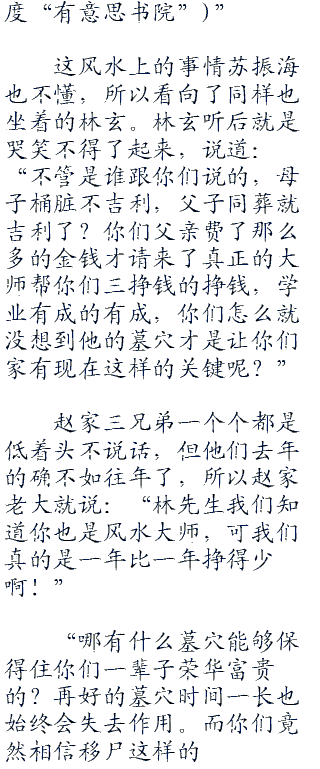 度“有意思书院”)”
这风水上的事情苏振海
也不懂，所以看向了同样也
坐着的林玄。林玄听后就是
哭笑不得了起来，说道：
“不管是谁跟你们说的，母
子桶脏不吉利，父子同葬就
吉利了？你们父亲费了那么
多的金钱才请来了真正的大
师帮你们三挣钱的挣钱，学
业有成的有成，你们怎么就
没想到他的墓穴才是让你们
家有现在这样的关键呢？”
赵家三兄弟一个个都是
低着头不说话，但他们去年
的确不如往年了，所以赵家
老大就说：“林先生我们知
道你也是风水大师，可我们
真的是一年比一年挣得少
啊！”
“哪有什么墓穴能够保
得住你们一辈子荣华富贵
的？再好的墓穴时间一长也
始终会失去作用。而你们竟
然相信移尸这样的